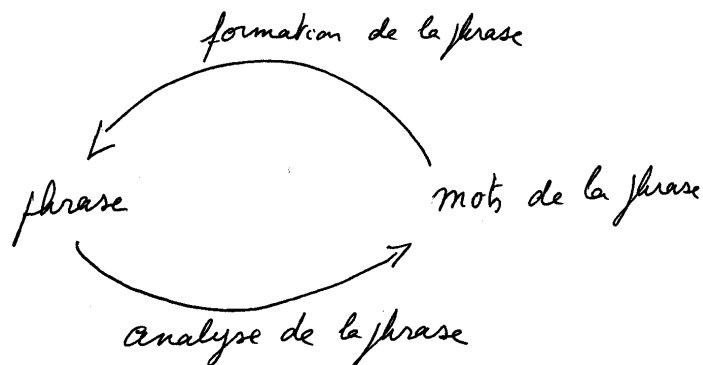 formation de la phrase
phrase
mots de la phrase
analyse de la phrase